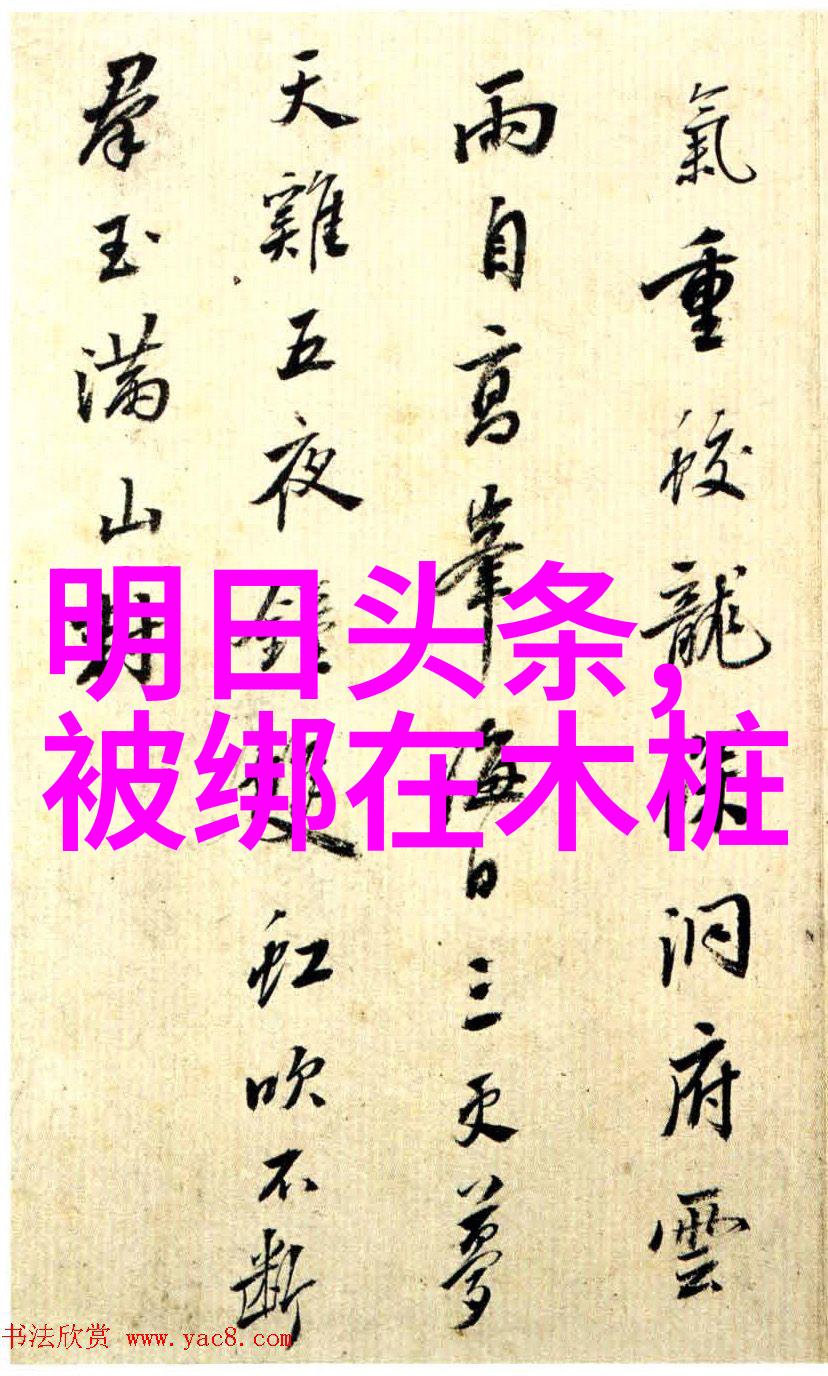 氣重蛟龍 洞府雲
雨自高峯海日三更夢
天雞五夜鐘雙虹吹不斷
羣玉滿山封
明日头条，
被绑在木桩
书法欣赏 www.yac8.com